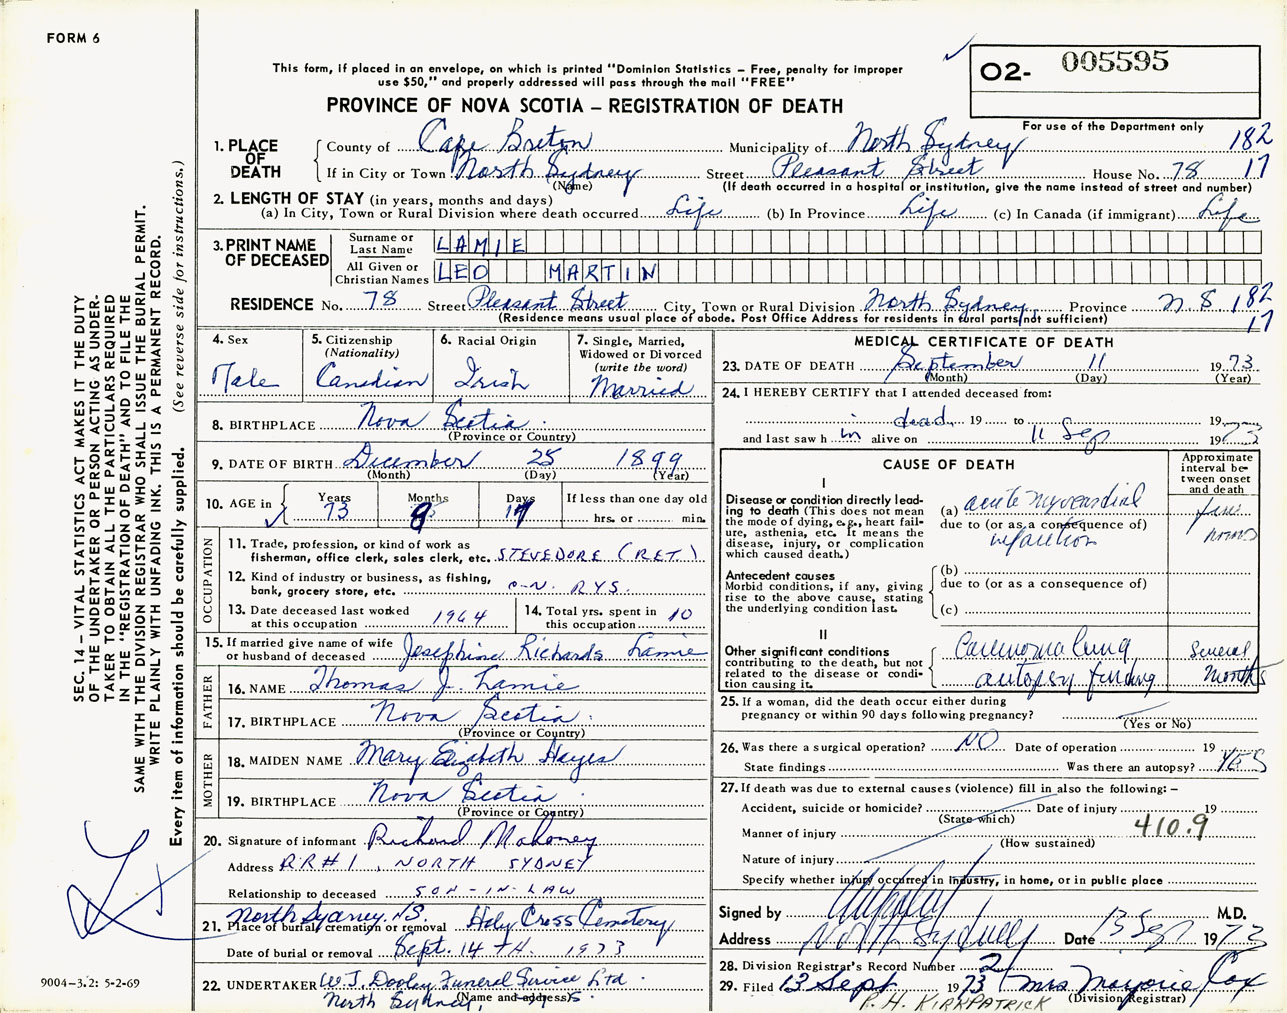 FORM 6
This form, if placed in an envelope, on which is printed "Dominion Statistics – Free, penalty for improper
use $50," and properly addressed will pass through the mail "FREE"
PROVINCE OF NOVA SCOTIA – REGISTRATION OF DEATH
O2- 005595
For use of the Department only
1. PLACE OF DEATH
County of Cape Breton Municipality of North Sydney 182
If in City or Town North Sydney Street Pleasant Street House No. 78 17
(Name) (If death occurred in a hospital or institution, give the name instead of street and number)
2. LENGTH OF STAY (in years, months and days)
(a) In City, Town or Rural Division where death occurred Life (b) In Province Life (c) In Canada (if immigrant) Life
3. PRINT NAME OF DECEASED
Surname or Last Name LAMIE
All Given or Christian Names LEO MARTIN
RESIDENCE No. 78 Street Pleasant Street City, Town or Rural Division North Sydney Province N.S 182
(Residence means usual place of abode. Post Office Address for residents in rural parts not sufficient) 17
4. Sex Male
5. Citizenship (Nationality) Canadian
6. Racial Origin Irish
7. Single, Married, Widowed or Divorced (write the word) Married
8. BIRTHPLACE Nova Scotia
(Province or Country)
9. DATE OF BIRTH December 25 1899
(Month) (Day) (Year)
10. AGE in Years 73 Months 8 Days 17 If less than one day old
hrs. or min.
OCCUPATION
11. Trade, profession, or kind of work as
fisherman, office clerk, sales clerk, etc. STEVEDORE (RET.)
12. Kind of industry or business, as fishing,
bank, grocery store, etc. C.N. RYS.
13. Date deceased last worked
at this occupation 1964
14. Total yrs. spent in
this occupation 10
15. If married give name of wife
or husband of deceased Josephine Richards Lamie
FATHER
16. NAME Thomas J. Lamie
17. BIRTHPLACE Nova Scotia
(Province or Country)
MOTHER
18. MAIDEN NAME Mary Elizabeth Hayes
19. BIRTHPLACE Nova Scotia
(Province or Country)
20. Signature of informant Richard Mahoney
Address R.R#1, NORTH SYDNEY
Relationship to deceased SON-IN-LAW
North Sydney, N.S. Holy Cross Cemetery
21. Place of burial, cremation or removal
Date of burial or removal Sept. 14TH. 1973
22. UNDERTAKER W.J. Dooley Funeral Service Ltd
North Sydney, N.S.
(Name and address)
MEDICAL CERTIFICATE OF DEATH
23. DATE OF DEATH September 11 1973
(Month) (Day) (Year)
24. I HEREBY CERTIFY that I attended deceased from:
dead 19 to 19
and last saw h im alive on 11 Sep 1973
CAUSE OF DEATH
Approximate interval between onset and death
I
Disease or condition directly leading to death (This does not mean the mode of dying, e.g., heart failure, asthenia, etc. It means the disease, injury, or complication which caused death.)
(a) acute myocardial
due to (or as a consequence of)
infarction
few hours
Antecedent causes
Morbid conditions, if any, giving rise to the above cause, stating the underlying condition last.
(b)
due to (or as a consequence of)
(c)
II
Other significant conditions
contributing to the death, but not related to the disease or condition causing it.
Carcinoma lung
autopsy finding
Several months
25. If a woman, did the death occur either during
pregnancy or within 90 days following pregnancy?
(Yes or No)
26. Was there a surgical operation? NO Date of operation 19
State findings Was there an autopsy? YES
27. If death was due to external causes (violence) fill in also the following: –
Accident, suicide or homicide? Date of injury 19
(State which)
Manner of injury 410.9
(How sustained)
Nature of injury
Specify whether injury occurred in Industry, in home, or in public place
Signed by M.D.
Address North Sydney Date 13 Sep 1973
28. Division Registrar's Record Number 2
29. Filed 13 Sept 1973 Mrs Marjorie Cox
(Division Registrar)
R. H. KIRKPATRICK
SEC. 14 – VITAL STATISTICS ACT MAKES IT THE DUTY
OF THE UNDERTAKER OR PERSON ACTING AS UNDER-
TAKER TO OBTAIN ALL THE PARTICULARS REQUIRED
IN THE "REGISTRATION OF DEATH" AND TO FILE THE
SAME WITH THE DIVISION REGISTRAR WHO SHALL ISSUE THE BURIAL PERMIT.
WRITE PLAINLY WITH UNFADING INK. THIS IS A PERMANENT RECORD.
Every item of information should be carefully supplied. (See reverse side for instructions.)
9004-3.2: 5-2-69